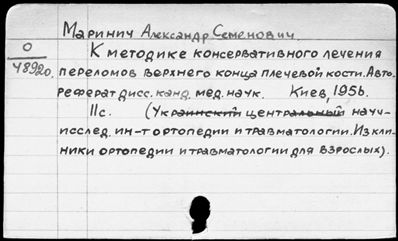 Маринич Александр Семенович.
О
48920.
К методике консервативного лечения
переломов верхнего конца плечевой кости. Авто.
реферат дисс. канд. мед. наук. Киев, 1956.
11с. (Украинский центральный научн-
исслед. ин-т ортопедии и травматологии. Из кли-
ники ортопедии и травматологии для взрослых).